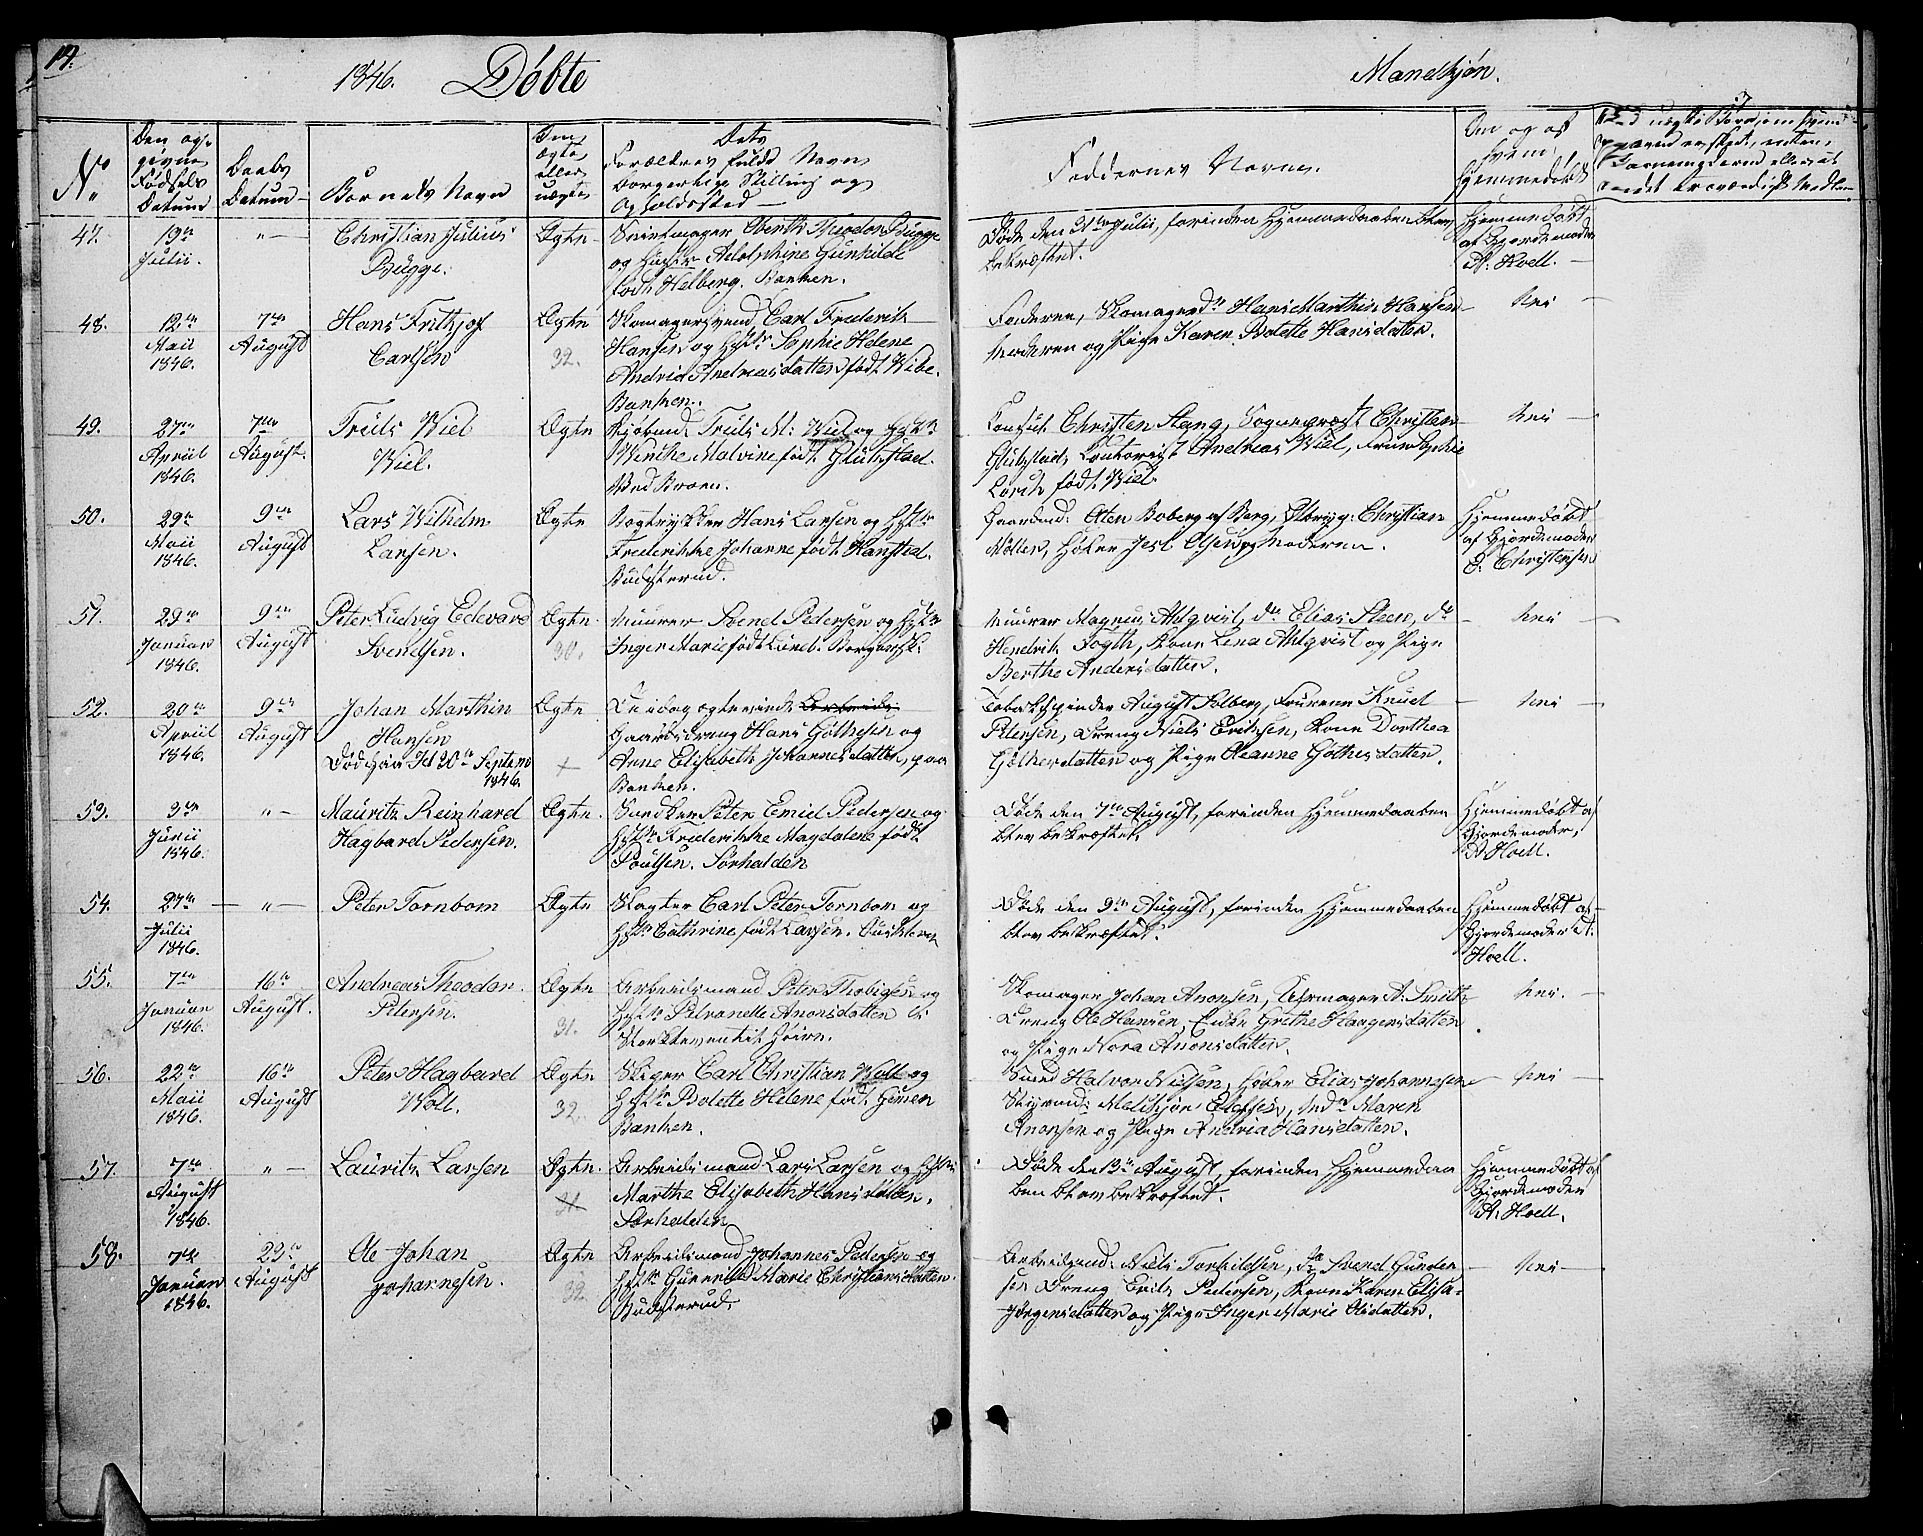 1846. Døbte
Mandkjøn.
No
Den op-
givne
Fødsels
Datum
Daabs
Datum
Barnets Navn
ægte
eller
uægte
Dets
Forældres fulde Navn
borgerlige Stilling og
Opholdssted
Faddernes Navne.
Om og af
hvem
hjemmedøbt
47.
13de
Julii.
" —
Christian Julius
Bugge.
Ægte
Theodor Bugge
og Hustr Adolphine Gunhilde
født Helberg. Banken.
Døde den 31te Julii, forinden Hjemmedaaben blev
bekræftet.
Hjemmedøbt
af Gjordemoder
A. Hoell. —
48.
12te
Maii
1846.
7de
August
Hans Frithjof
Carlsen
Ægte
32.
Skomagersvend Carl Frederik
Hansen og Hstr Sophie Helene
Andrea Andreasdatter født Wibe.
Banken.
Faderen, Skomager Hans Marthin Hansen
Moderen og Pige Karen Bolette Hansdatter.
Nei —
49.
27de
Apriil
1846.
7de
August.
Truls Wiel
Wiel.
Ægte
Kjøbmd. Truls M: Wiel og Hstr
Wenche Malvine født Glückstad.
Ved Broen.
Consul Christen Stang, Sogneprest Christen
Glückstad, Contorist Andreas Wiel, Frue Sophie
Lorck født Wiel
Nei —
50.
29de
Maii
1846.
9de
August
Lars Wilhelm
Larsen.
Ægte
Bogtrykker Hans Larsen og Hstr
Frederikke Johanne født Hansted.
Budsterud.
Gaardmd: Aten Boberg af Berg, Ølbryg: Christian
Møller, Høker Olsen og Moderen.
Hjemmedøbt
af Gjordemoder
Christensen
51.
29de
Januar
1846.
9de
August
Peter Ludvig Edevard
Svendsen.
Ægte
30.
Muurer Svend Pedersen og Hstr
Inger Marie født Lund.
Muurer Magnus Ahlqvist, do Elias Steen, do
Hendrik Fogth, Kone Lena Ahlqvist og Pige
Berthe Andersdatter.
Nei —
52.
20de
Apriil
1846.
9de
August
Johan Marthin
Hansen
Død her den 20de Septem
1846.
Ægte
+
Gaardsdreng Hans Gøthesen og
Anne Elisabeth Johannesdatter, paa
Banken.
Tobakspinder August Solberg, Knud
Petersen, Dreng Niels Eriksen, Kone Dorthea
Gøthesdatter og Pige Oleanne Gøthesdatter.
Nei —
53.
3de
Junii
1846.
" —
Mauritz Reinhard
Hagbard Pedersen.
Ægte.
Snedker Peter Emid Pedersen og
Hstr Frederikke Magdalene født
Poulsen. Sørhalden
Døde den 7de August, forinden Hjemmedaaben
blev bekræftet.
Hjemmedøbt af
Gjordemoder
A. Hoell.
54.
27de
Julii
1846.
" —
Peter Tornbom
Ægte
Slagter Carl Peter Tornbom og
Hstr Cathrine født Larsen.
Døde den 9de August, forinden Hjemmedaaben
blev bekræftet.
Hjemmedøbt af
Gjordemoder A.
Hoell.
55.
7de
Januar
1846.
16de
August.
Andreas Theodor
Petersen.
Ægte
31.
Arbeidsmand Peter Thobiesen og
Hstr Petronelle Anonsdatter
Skomager Johan Anonsen, Uhrmager A. Smith
Dreng Ole Hansen, Enke Grethe Haagensdatter
og Pige Nora Anonsdatter.
Nei. —
56.
22de
Maii
1846.
16de
August
Peter Hagbard
Woll.
Ægte
32.
Skipper Carl Christian Woll og
Hstr Bolette Helene født
Banken.
Smed Halvor Nielsen, Høker Elias Johannesen
Maren
Anonsen og Pige Andrea Hansdatter.
Nei —
57.
7de
August
1846.
" —
Lauritz Larsen
Ægte.
31.
Arbeidsmand Lars Larsen og Hstr
Marthe Elisabeth Hansdatter.
Sørhalden
Døde den 13de August, forinden Hjemmedaa
ben blev bekræftet.
Hjemmedøbt af
Gjordemoder
A. Hoell.
58.
7de
Januar
1846.
23de
August
Ole Johan
Johannesen.
Ægte
32
Arbeidsmand Johannes Pedersen og
Hstr Gunnild Marie Christiansdatter.
Budsterud.
Arbeidsmd: Niels Torkildsen, do Svend Gunder
sen Dreng Erik Pedersen, Kone Karen Elisa
Jørgensdatter og Pige Inger Marie Olsdatter.
Nei —